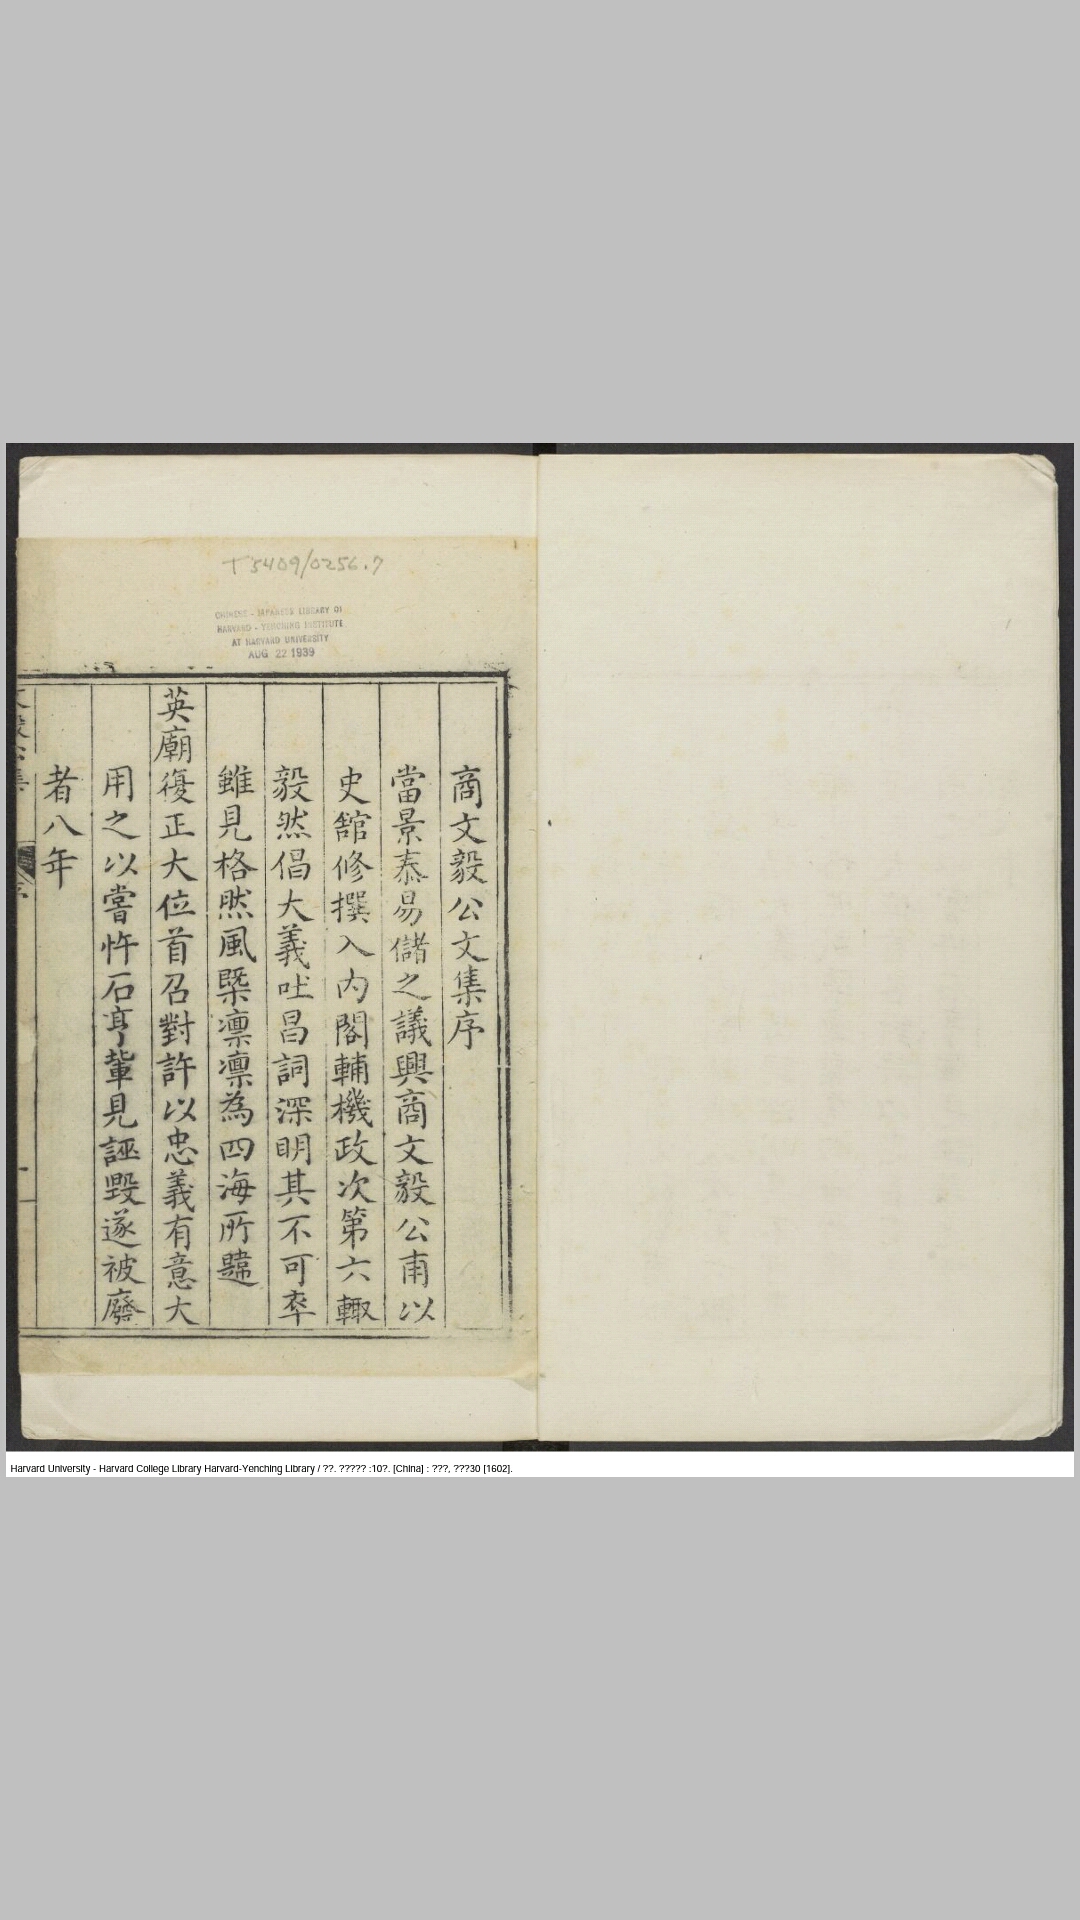 T5409/0256.7
CHINESE - JAPANESE LIBRARY OF
HARVARD - YENCHING INSTITUTE
AT HARVARD UNIVERSITY
AUG 22 1939
商文毅公文集序
當景泰易儲之議興商文毅公甫以
史舘修撰入内閣輔機政次第六輙
毅然倡大義吐昌詞深明其不可卒
雖見格然風槩凛凛為四海所韙
英廟復正大位首召對許以忠義有意大
用之以嘗忤石亨輩見誣毀遂被廢
者八年
Harvard University - Harvard College Library Harvard-Yenching Library / ??. ????? :10?. [China] : ???, ???30 [1602].